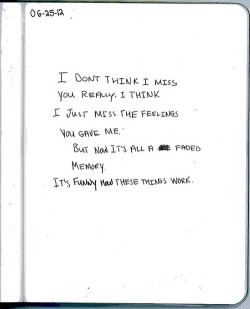 06-25-12
I DONT THINK I MISS
YOU REALLY. I THINK
I JUST MISS THE FEELINGS
YOU GAVE ME.
BUT NOW IT'S ALL A FADED
MEMORY.
IT'S FUNNY HOW THESE THINGS WORK.